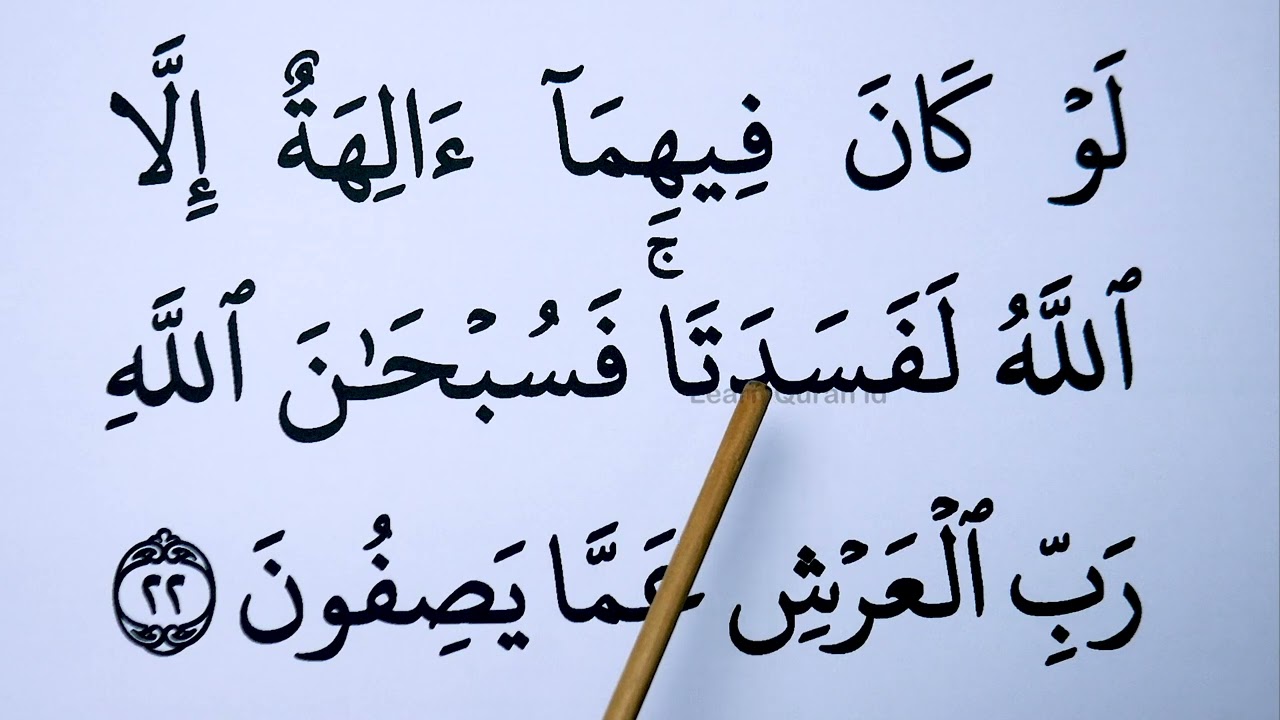 لَوۡ كَانَ فِيهِمَآ ءَالِهَةٌ إِلَّا
ٱللَّهُ لَفَسَدَتَاۚ فَسُبۡحَٰنَ ٱللَّهِ
رَبِّ ٱلۡعَرۡشِ عَمَّا يَصِفُونَ ٢٢
Learn Quran id